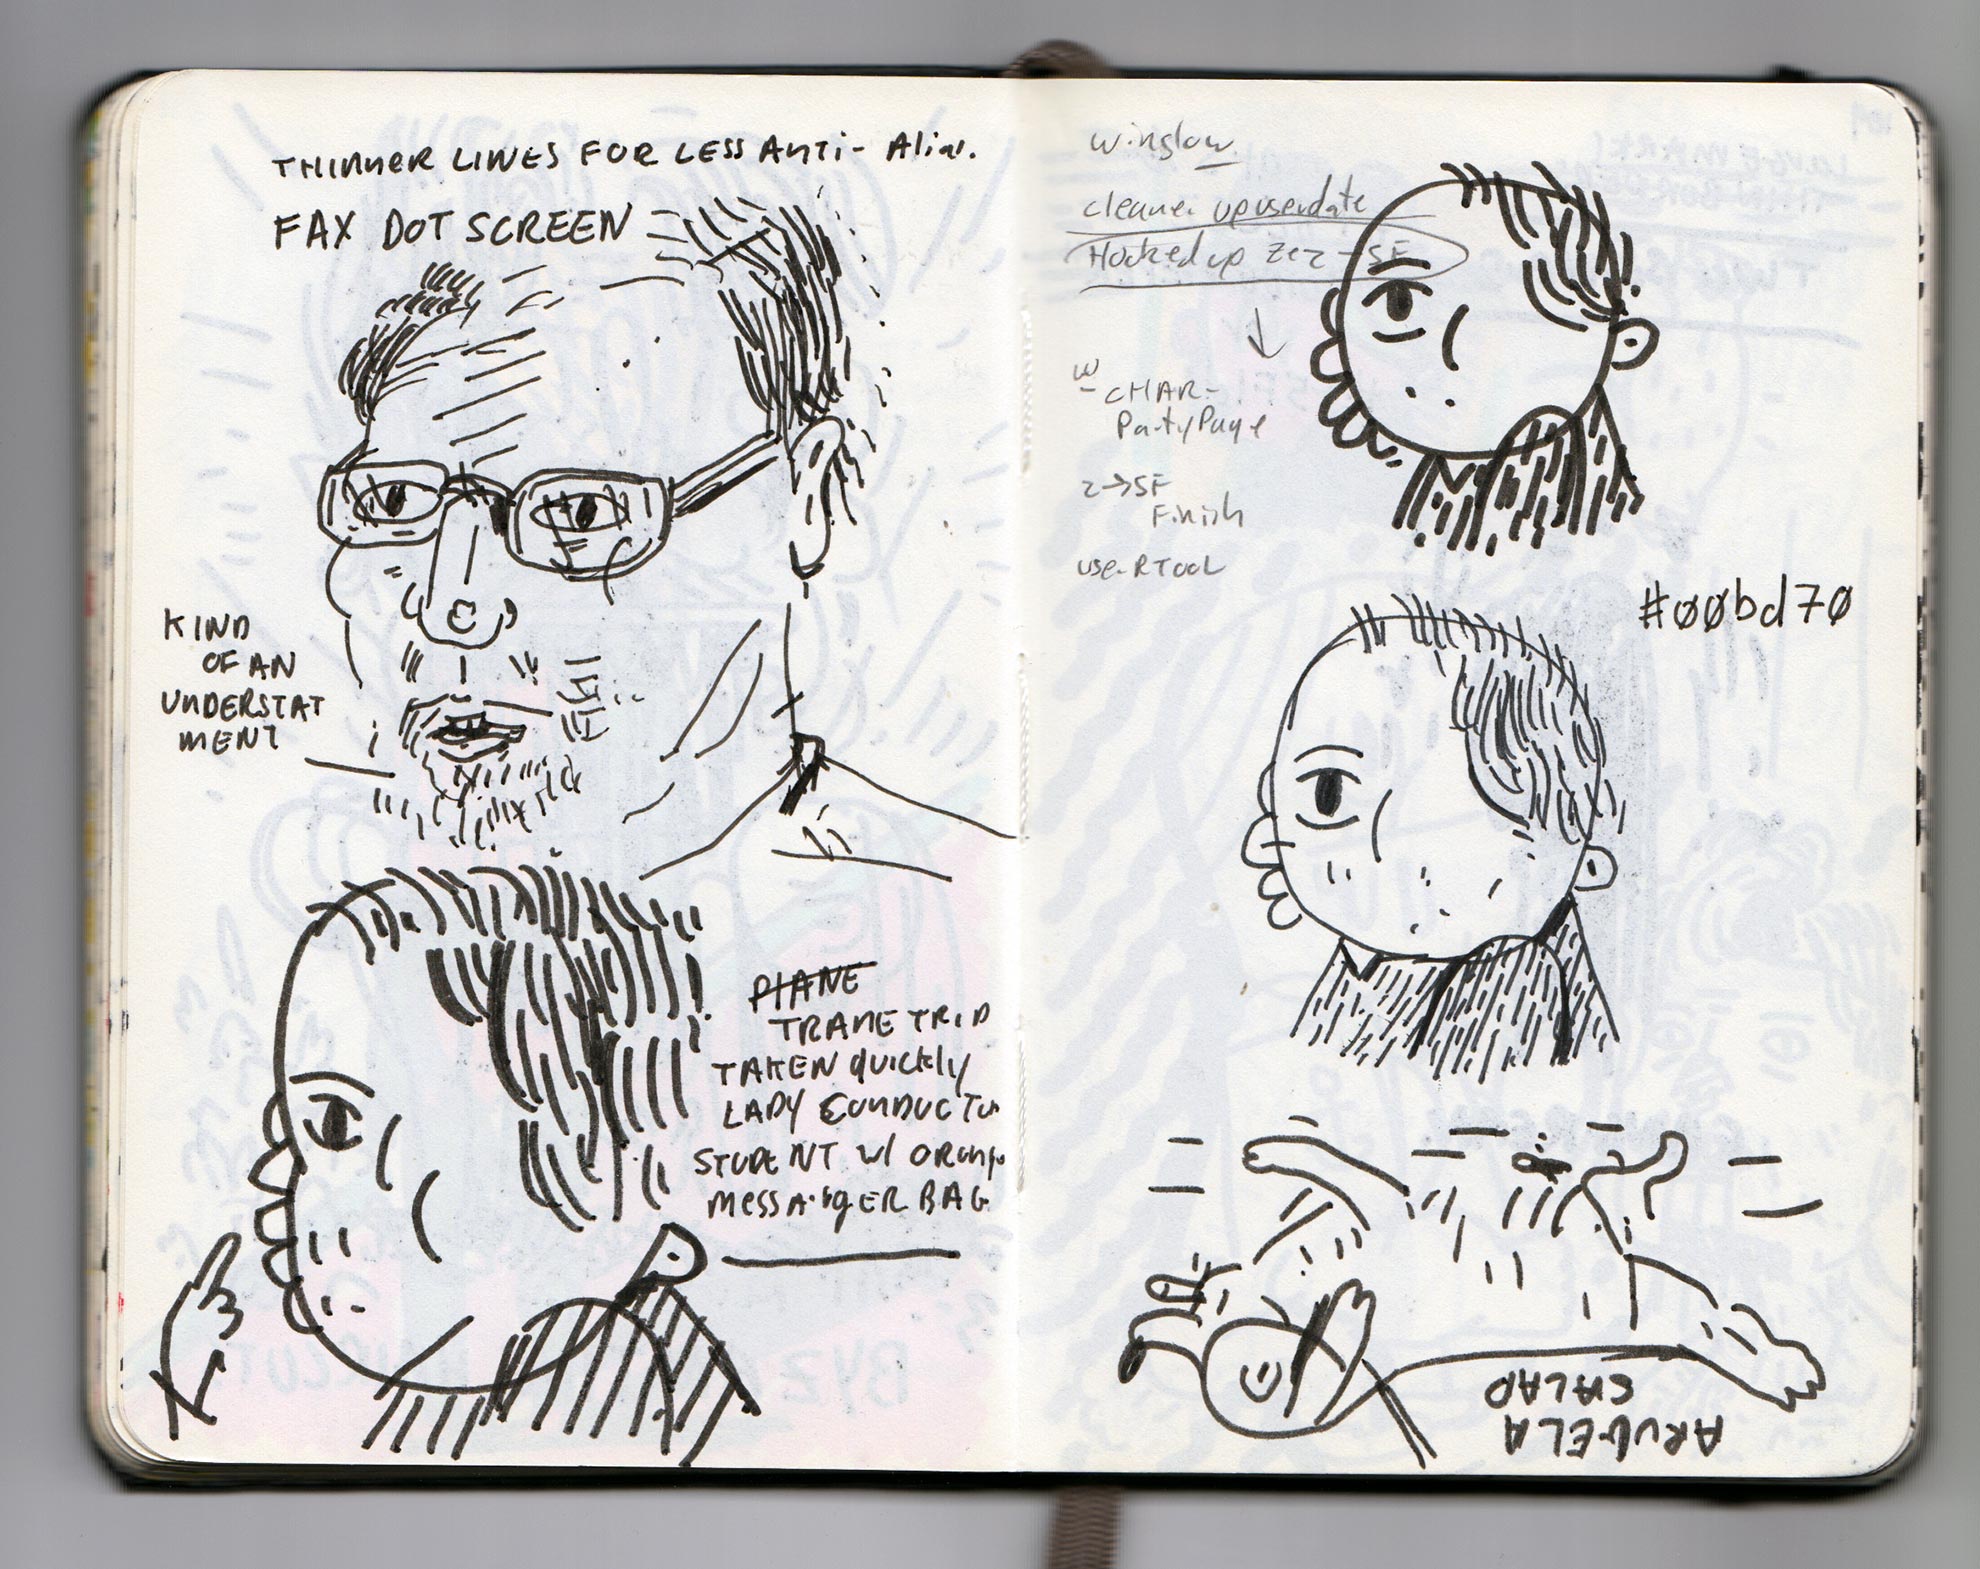 THINNER LINES FOR LESS ANTI- Alias.
FAX DOT SCREEN
KIND
OF AN
UNDERSTAT
MENT
PLANE
TRANE TRIP
TAKEN QUICKLY
LADY CONDUCTOR
STUDENT W/ ORANGE
MESSANGER BAG
Winslow
cleaner upuserdate
Hooked up zez → SF
W
- CHAR-
PartyPage
z→SF
Finish
useRTOOL
#00bd70
ARUGELA
SALAD